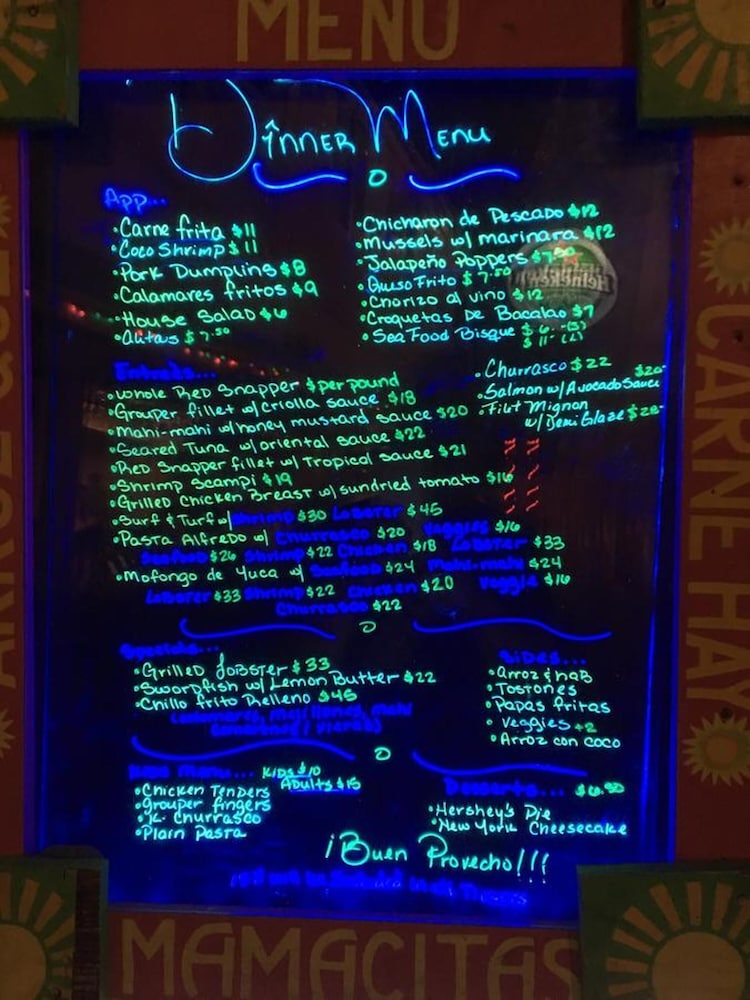 MENU
Dinner Menu
App...
Carne frita $11
Coco Shrimp $11
Pork Dumplins $8
Calamares fritos $9
House Salad $6
Alitas $7.50
Chicharon de Pescado $12
Mussels w/ marinara $12
Jalapeño Poppers $7.50
Queso Frito $7.50
Chorizo al vino $12
Croquetas De Bacalao $7
Sea Food Bisque $6-(S)
$11-(L)
Heineken
Entreés...
Whole Red Snapper $ per pound
Grouper fillet w/ criolla sauce $18
Mahi-mahi w/ honey mustard sauce $20
Seared Tuna w/ oriental sauce $22
Red Snapper fillet w/ Tropical sauce $21
Shrimp Scampi $19
Grilled Chicken Breast w/ sundried tomato $16
Surf & Turf w/ Shrimp $30 Lobster $45
Pasta Alfredo w/ Churrasco $20 Veggies $16
Seafood $26 Shrimp $22 Chicken $18 Lobster $33
Mofongo de Yuca w/ Seafood $24 Mahi-mahi $24
Lobster $33 Shrimp $22 Chicken $20 Veggie $16
Churrasco $22
Churrasco $22
Salmon w/ Avocado Sauce $20
Filet Mignon
w/ Demi Glaze $28
Specials...
Grilled Lobster $33
Swordfish w/ Lemon Butter $22
Chillo frito Relleno $45
Sides...
Arroz & hab
Tostones
Papas fritas
Veggies +2
Arroz con coco
Kids Menu... Kids $10
Adults $15
Chicken Tenders
Grouper fingers
K. Churrasco
Plain Pasta
Desserts... $6.50
Hershey's Pie
New York Cheesecake
¡Buen Provecho!!!
CARNE HAY
MAMACITAS